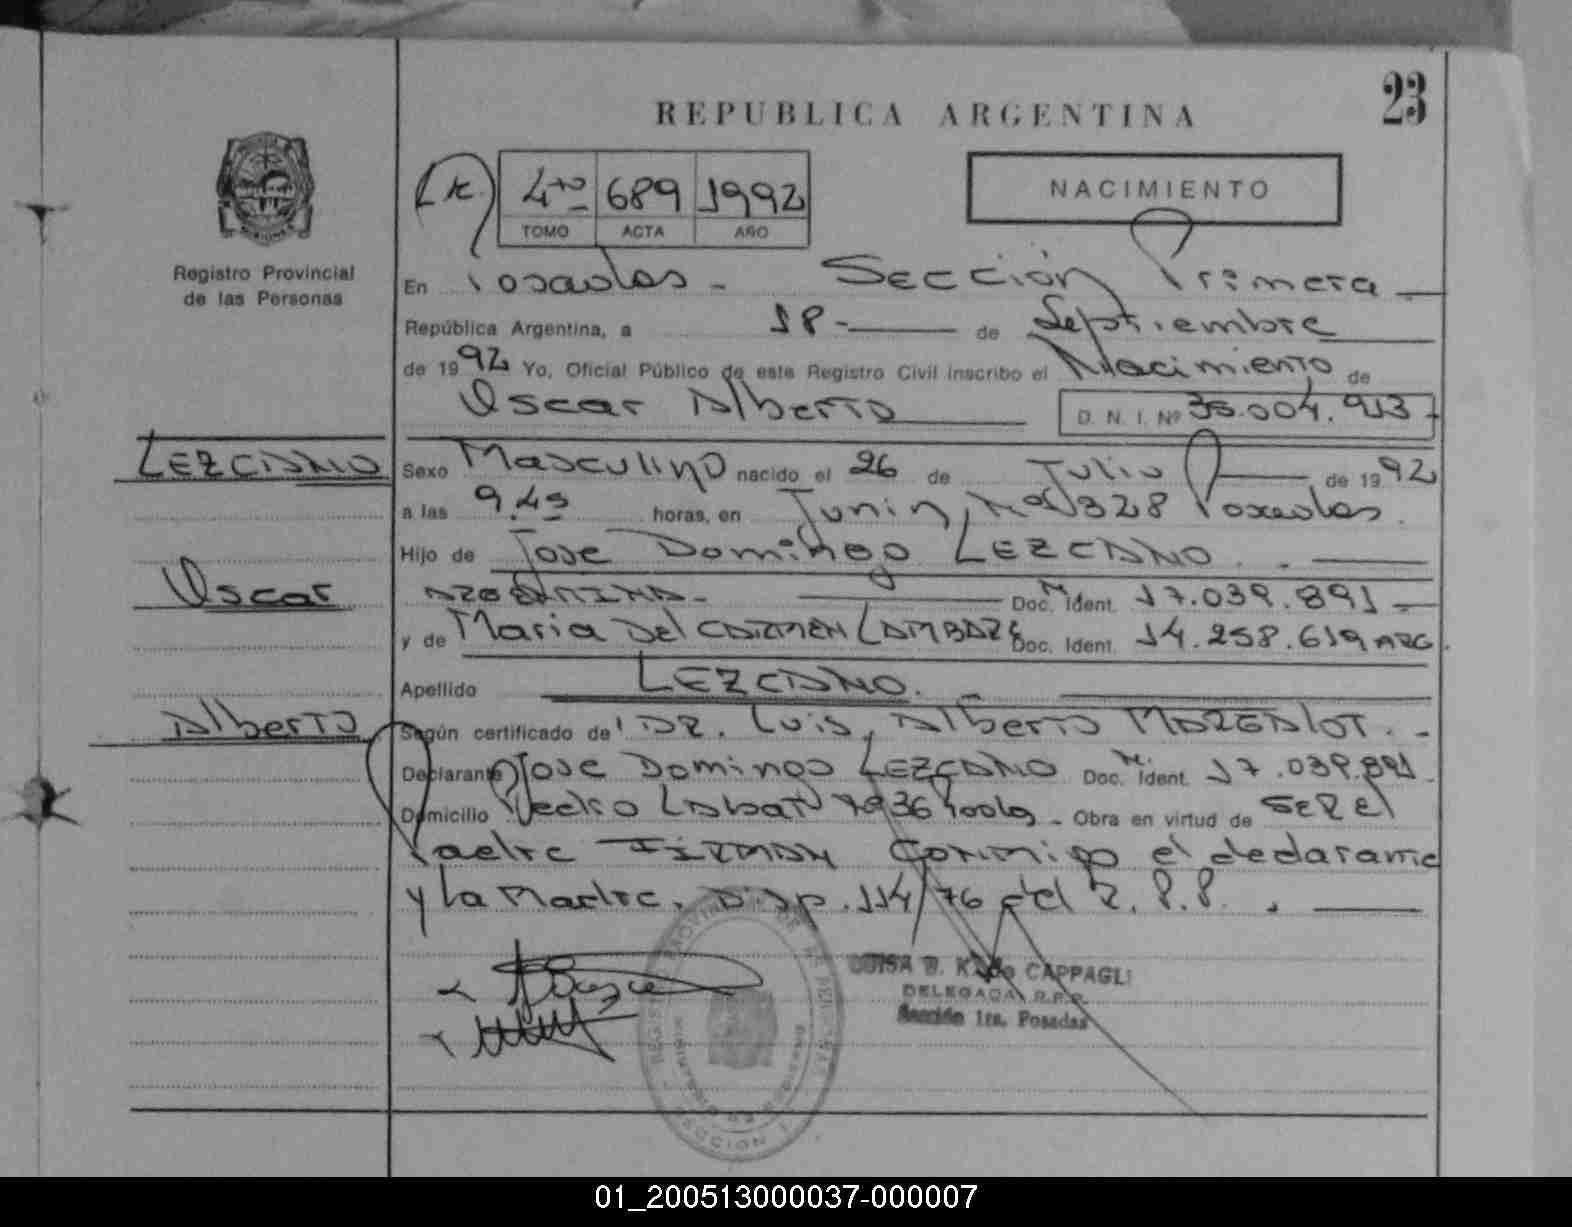 REPUBLICA ARGENTINA
23
4to 689 1992
TOMO ACTA AÑO
NACIMIENTO
Registro Provincial
de las Personas
En Posadas - Sección Primera
República Argentina, a 18 - de Septiembre
de 1992 Yo, Oficial Público de este Registro Civil inscribo el Nacimiento de
Oscar Alberto D. N. I. Nº .004.913-
LEZCANO
Sexo Masculino nacido el 26 de Julio de 1992
a las 9.45 horas, en Junin, Nº 328 Posadas.
Hijo de Jose Domingo LEZCANO.
Oscar
ARGENTINA- Doc. Ident. M. 17.039.891
y de Maria Del CARMEN Doc. Ident. 14.258.619 ARG.
Apellido LEZCANO. -
Alberto
Según certificado del DR. Luis, Alberto -
Declarante Jose Domingo LEZCANO Doc. Ident. M. 17.039.891
Domicilio Pedro - Obra en virtud de SER El
Padre FIRMAN Conmigo el declarante
y La Madre. Disp. 114/76 del R.P.P.
LUISA CAPPAGLI
DELEGADA R.P.P.
Sección 1ra. Posadas
REGISTRO PROVINCIAL DE LAS PERSONAS
SECCION 1
01_200513000037-000007